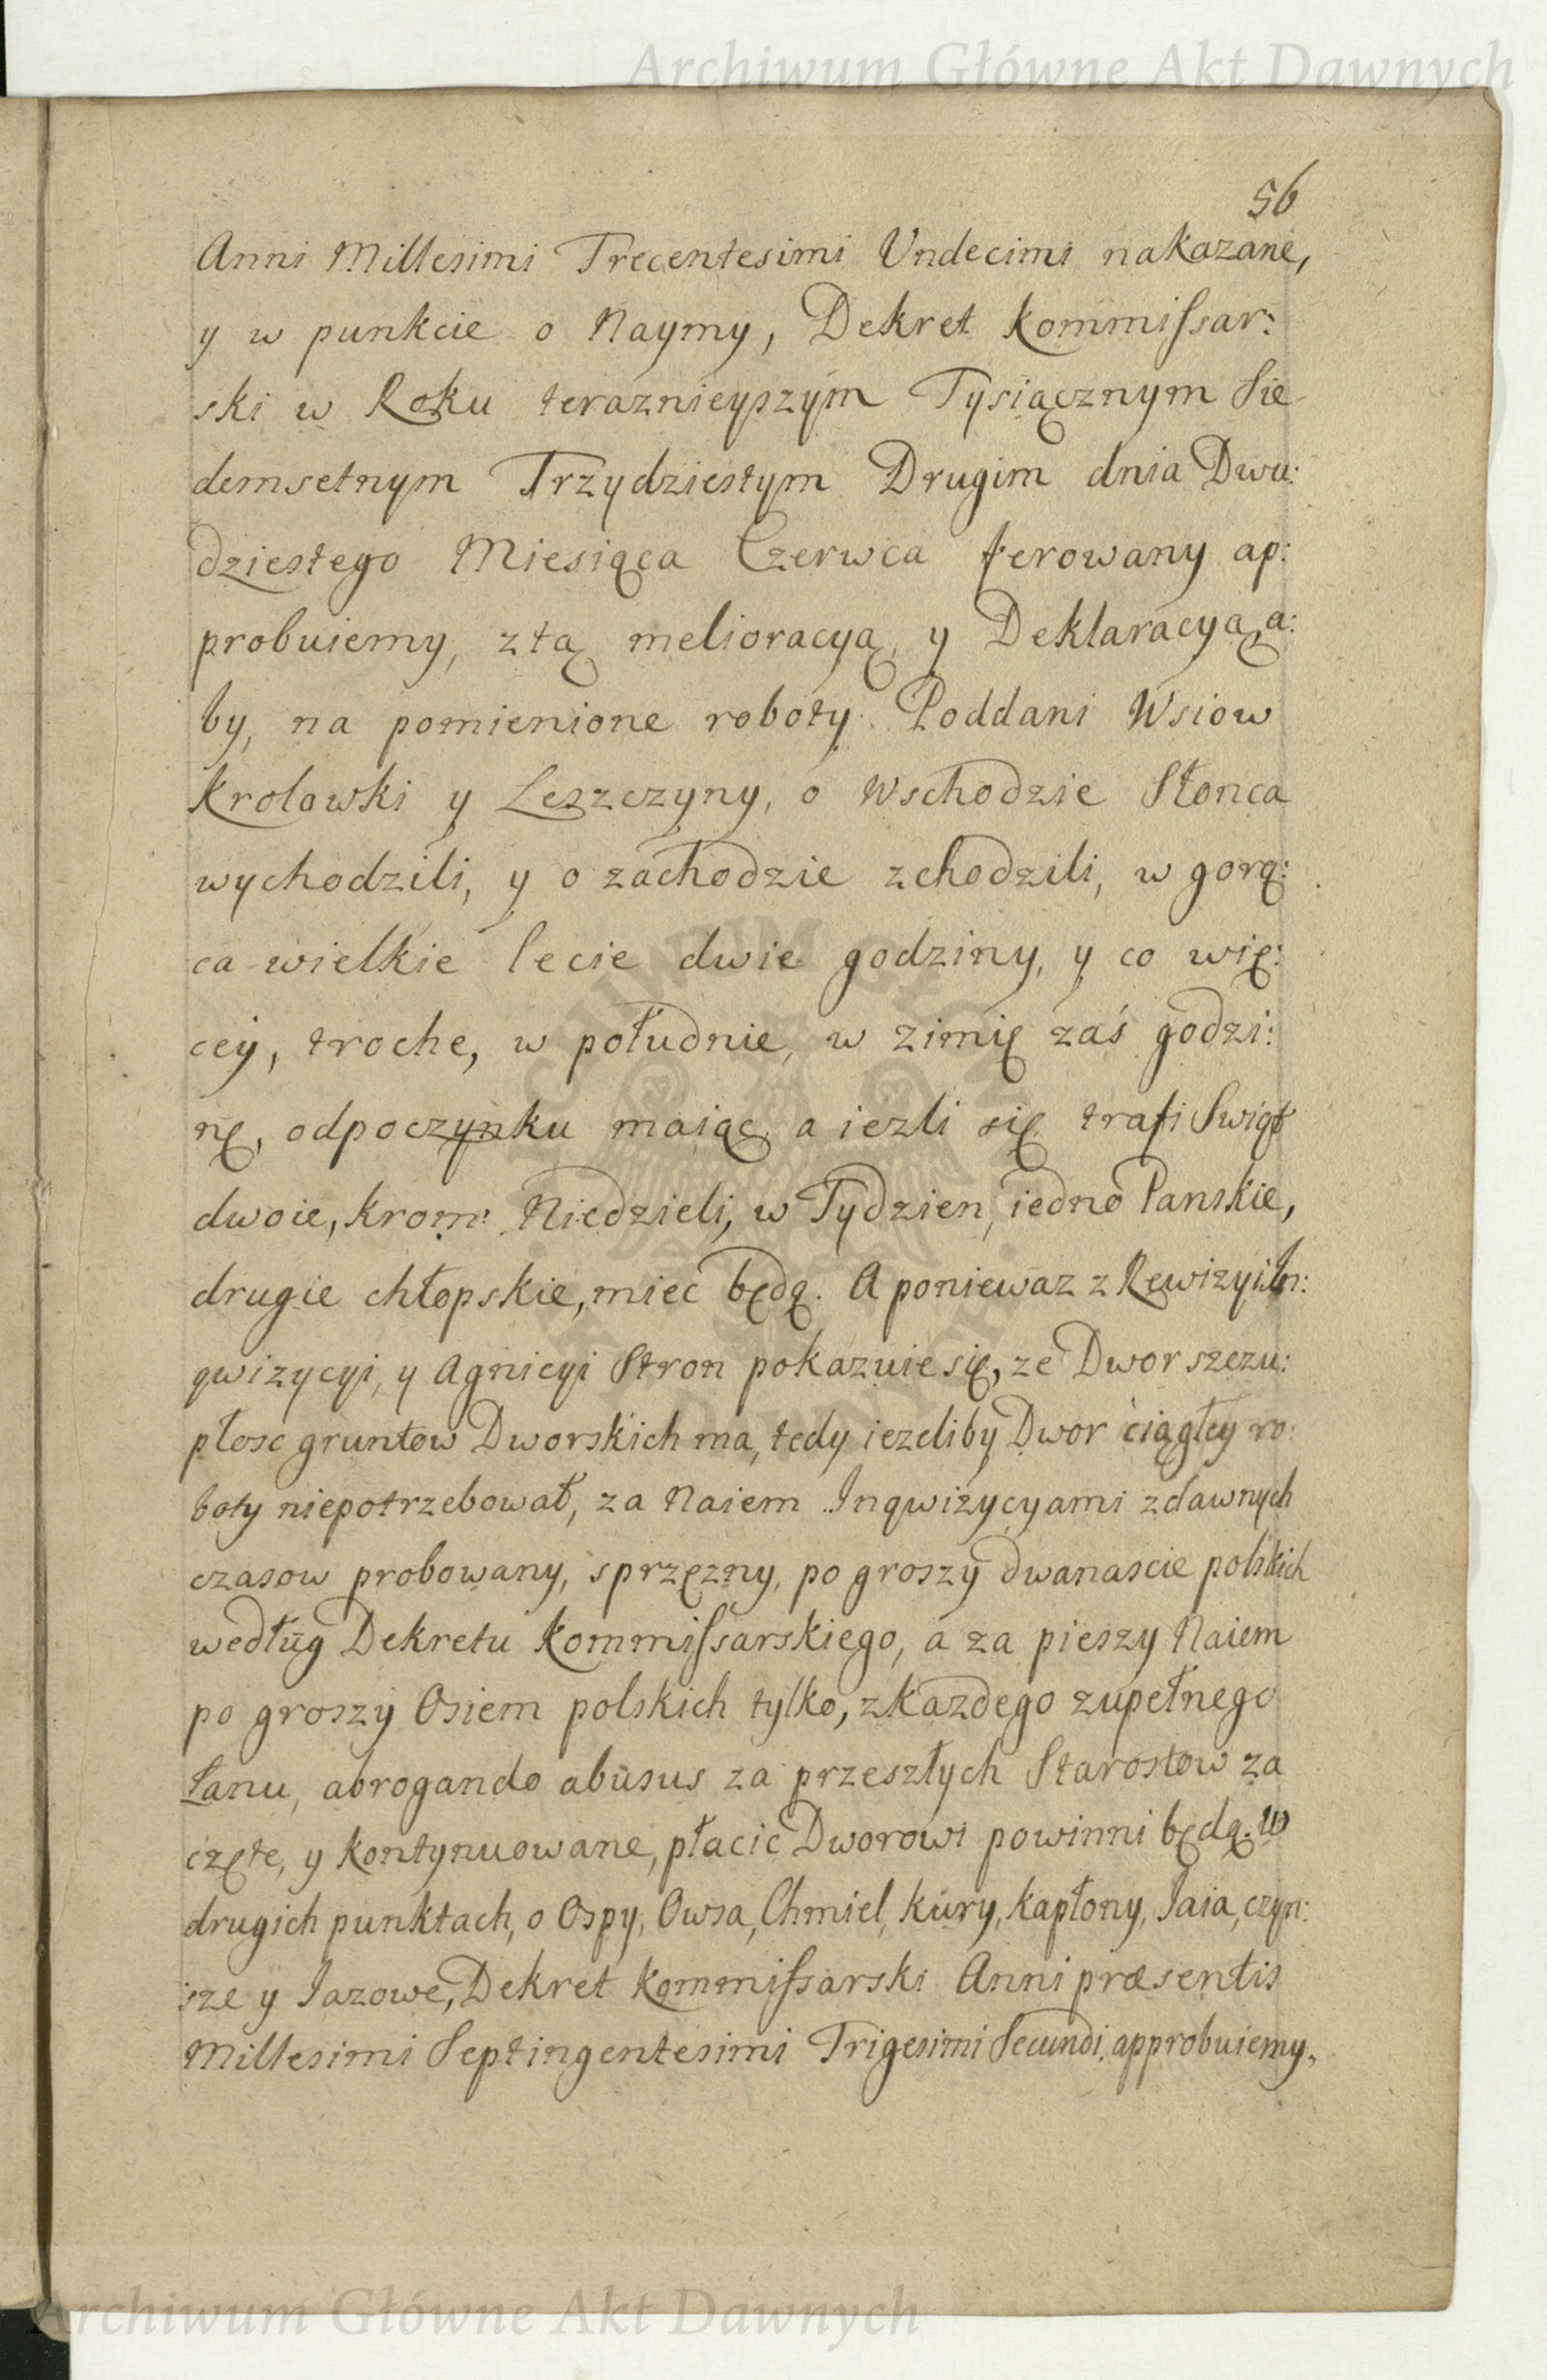 Archiwum Główne Akt Dawnych
56
Anni Millesimi Trecentesimi Undecimi nakazane,
y w punkcie o Naymy, Dekret Kommissar:
ski w Roku teraznieyszym Tysiącznym Sie
demsetnym Trzydziestym Drugim dnia Dwu:
dziestego Miesiąca Czerwca ferowany ap:
probuiemy, z tą melioracyą, y Deklaracyą, a:
by, na pomienione roboty Poddani Wsiow
Krolowki y Leszczyny, o Wschodzie Słonca
wychodzili, y o zachodzie zchodzili, w gorą:
ca wielkie lecie dwie godziny, y co wię:
cey, troche, w południe, w zimię zaś godzi:
nę, odpoczynku maiąc, a iezli się trafi Swiąt
dwoie, krom: Niedzieli, w Tydzien, iedno Panskie,
drugie chłopskie, miec będą. A poniewaz z Rewizyi In:
qwizycyi, y Agnicyi Stron pokazuie się, ze Dwor szczu:
płosc gruntow Dworskich ma, tedy iezeliby Dwor ciągłey ro:
boty niepotrzebował, za Naiem Inqwizycyami zdawnych
czasow probowany, sprzęzny, po groszy dwanascie polskich
według Dekretu Kommissarskiego, a za pieszy Naiem
po groszy Osiem polskich tylko, z Kazdego zupełnego
Łanu, abrogando abusus za przeszłych Starostow za
częte, y kontynuowane, płacic Dworowi powinni będą. W
drugich punktach, o Ospy, Owsa, Chmiel, kury, kapłony, Jaia, czyn:
sze y Jazowe, Dekret Kommissarski Anni præsentis
Millesimi Septingentesimi Trigesimi Secundi, approbuiemy,
Archiwum Główne Akt Dawnych